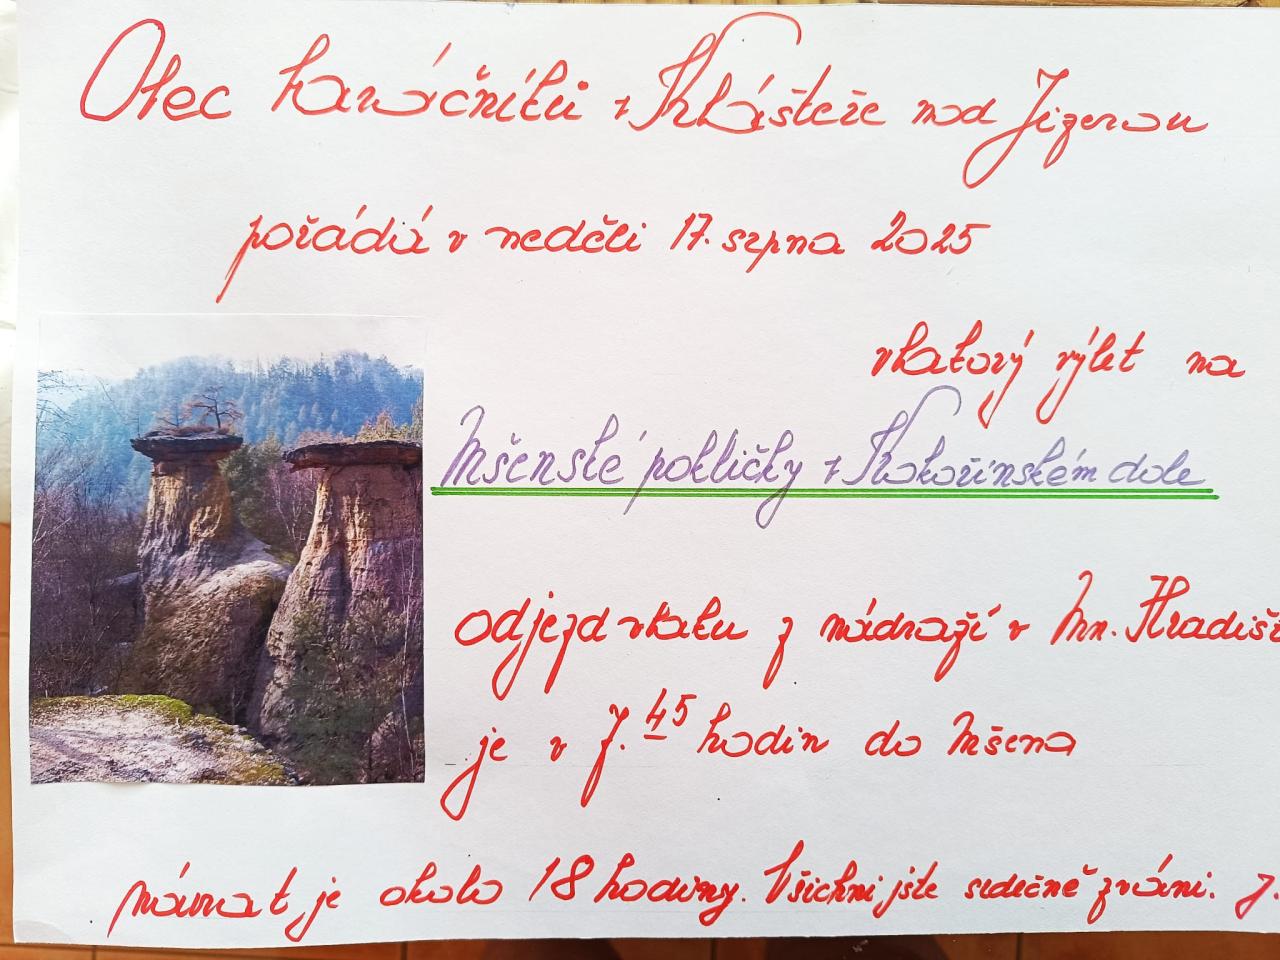 Obec baráčníků v Klášteře nad Jizerou
pořádá v neděli 17. srpna 2025
vlakový výlet na
Mšenské pokličky v Kokořínském dole
odjezd vlaku z nádraží v Mn. Hradiš
je v 7.45 hodin do Mšena
návrat je okolo 18 hodiny. Všichni jste srdečně zváni.